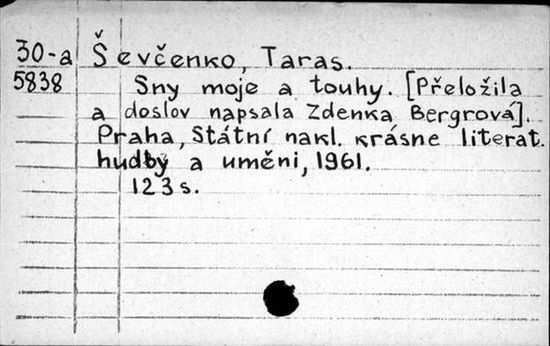 30-a Ševčenko, Taras.
5838 Sny moje a touhy. [Přeložila
a doslov napsala Zdenka Bergrová].
Praha, Státní nakl. krásne literat.
hudby a uměni, 1961.
123 s.